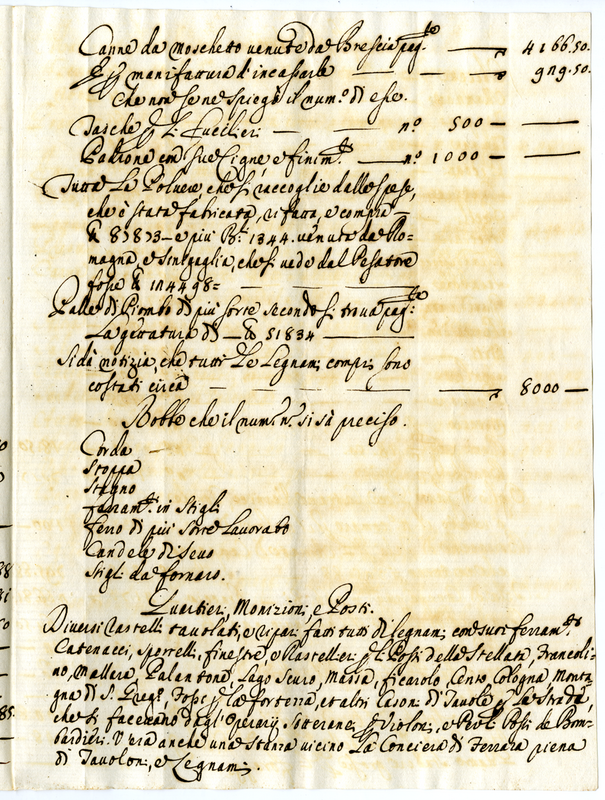 Canne da moschetto venute da Brescia pag.te — 4166.50.
E p manifattura d'incassarle — 929.50.
Che non se ne spiega il num.o di esse.
Tasche p li Fucilieri — n.o 500 —
Padrone con sue Cigne, e finim.ti — n.o 1000 —
Tutta La Poluere, che si raccoglie dalle spese,
che è stata fabricata, rifatta, e compra
e più 1344. venuta da Ro=
magna, e Sinigaglia, che si vede dal Pesatore
fosse
Palle di Piombo di più sorte secondo si troua pag.te
La gettatura di — 51834
Si dà notizia, che tutti Le Legnami compri sono
costati circa — 8000 —
Robbe che il num.o n. si sà preciso.
Corda —
Stoppa
Stagno
Ferram.ti in Stigli
Ferro di più sorte Lauorato
Candele di Seuo
Stigli da fornaro.
Quartieri, Monizioni, e Posti.
Diuersi Rastelli tauolati, e ripari fatti tutti di Legnami con suoi ferram.ti
Catenacci, sportelli, finestre, e Rastellieri p Li Posti della Stellata, Francoli=
no, Mallara, Palantone, Lago Scuro, Massa, Ficarolo, Cento, Cologna, Monta
gna di S. Greg.o, Fossi p La forterra, et altri Casoni di Tauole p La Strada,
che si faceuano dagl'Operarij Soterane, p Violoni, e Per Li Posti de Bom=
bardieri. V'era anche una Stanza vicino La Conciera di Ferrara piena
di Tauoloni, e Legnami.